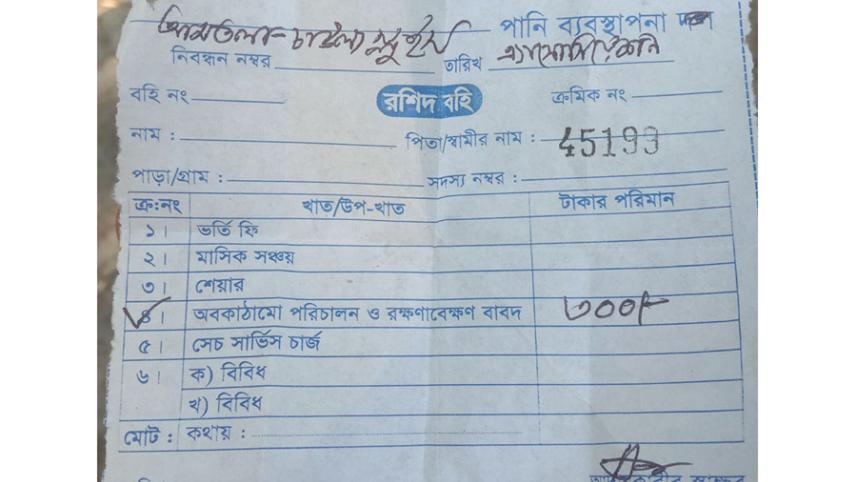 আমতলা-চাউলা স্লুইস পানি ব্যবস্থাপনা দল
নিবন্ধন নম্বর তারিখ এ্যাসোসিয়েশন
বহি নং রশিদ বহি ক্রমিক নং
নাম : পিতা/স্বামীর নাম : 45199
পাড়া/গ্রাম : সদস্য নম্বর :
ক্র:নং খাত/উপ-খাত টাকার পরিমান
১। ভর্তি ফি
২। মাসিক সঞ্চয়
৩। শেয়ার
৪। অবকাঠামো পরিচালন ও রক্ষণাবেক্ষণ বাবদ ৩০০/-
৫। সেচ সার্ভিস চার্জ
৬। ক) বিবিধ
খ) বিবিধ
মোট : কথায় :